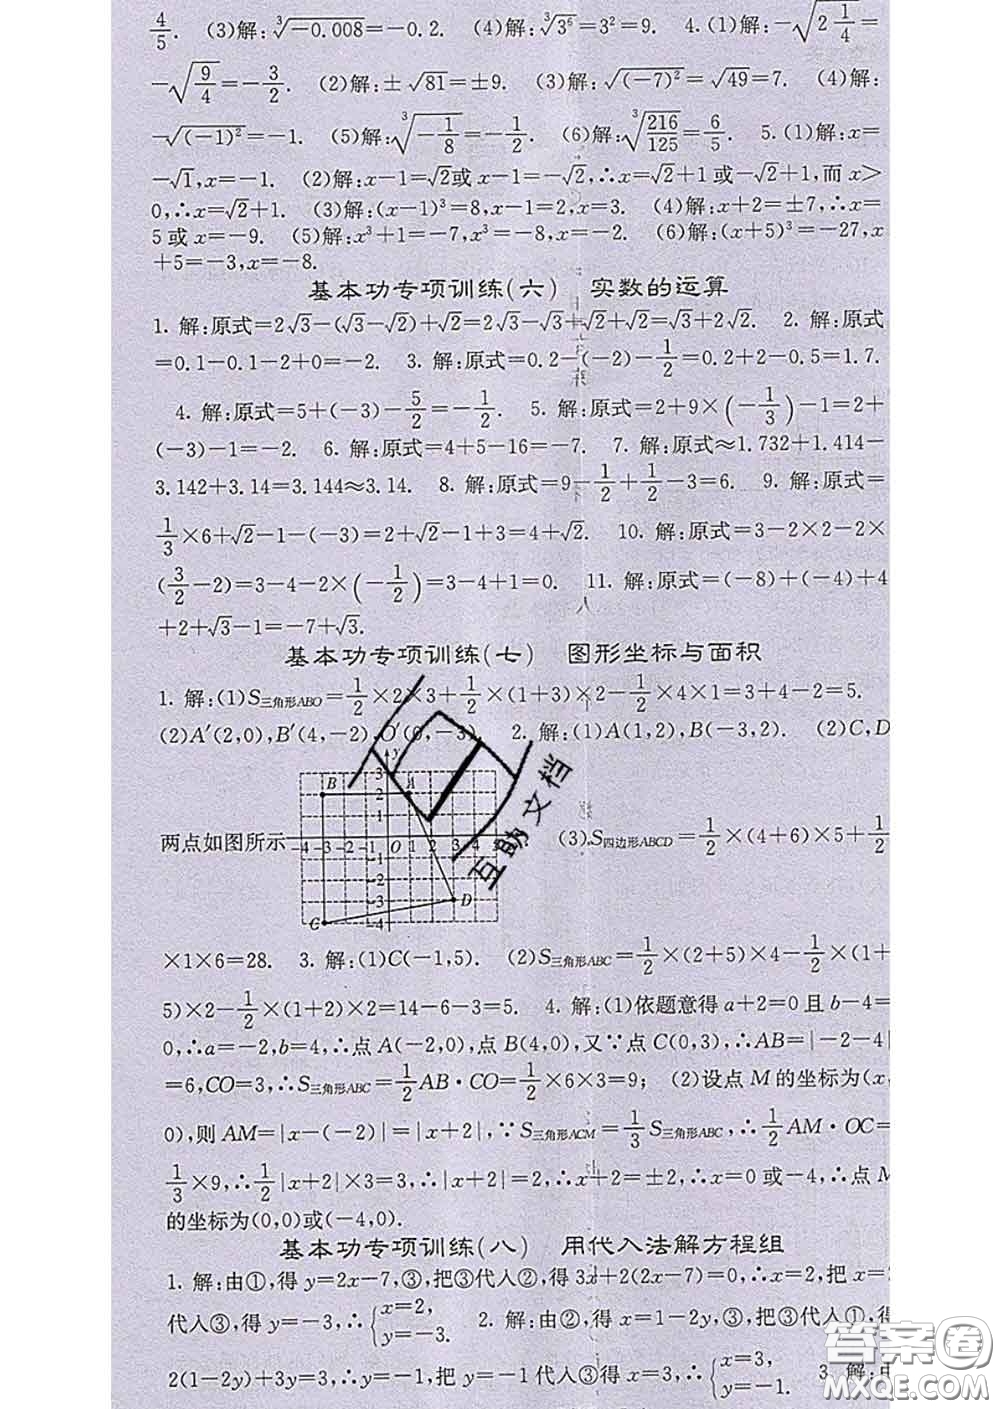 4/5. (3)解:∛-0.008=-0.2. (4)解:∛3⁶=3²=9. 4.(1)解:-√(2 1/4)=
-√(9/4)=-3/2. (2)解:±√81=±9. (3)解:√(-7)²=√49=7. (4)解:
-√(-1)²=-1. (5)解:∛(-1/8)=-1/2. (6)解:∛(216/125)=6/5. 5.(1)解:x=
-√1,x=-1. (2)解:x-1=√2或x-1=-√2,∴x=√2+1或-√2+1,而x>
0,∴x=√2+1. (3)解:(x-1)³=8,x-1=2,x=3. (4)解:x+2=±7,∴x=
5或x=-9. (5)解:x³+1=-7,x³=-8,x=-2. (6)解:(x+5)³=-27,x
+5=-3,x=-8.
基本功专项训练(六) 实数的运算
1. 解:原式=2√3-(√3-√2)+√2=2√3-√3+√2+√2=√3+2√2. 2. 解:原式
=0.1-0.1-2+0=-2. 3. 解:原式=0.2-(-2)-1/2=0.2+2-0.5=1.7.
4. 解:原式=5+(-3)-5/2=-1/2. 5. 解:原式=2+9×(-1/3)-1=2+
(-3)-1=-2. 6. 解:原式=4+5-16=-7. 7. 解:原式≈1.732+1.414-
3.142+3.14=3.144≈3.14. 8. 解:原式=9-1/2+1/2-3=6. 9. 解:原式=
1/3×6+√2-1-(-3)=2+√2-1+3=4+√2. 10. 解:原式=3-2×2-2×
(3/2-2)=3-4-2×(-1/2)=3-4+1=0. 11. 解:原式=(-8)+(-4)+4
+2+√3-1=-7+√3.
基本功专项训练(七) 图形坐标与面积
1. 解:(1)S三角形ABO=1/2×2×3+1/2×(1+3)×2-1/2×4×1=3+4-2=5.
(2)A′(2,0),B′(4,-2),O′(0,-3). 2. 解:(1)A(1,2),B(-3,2). (2)C,D
y
B 3 A
2
1
两点如图所示 -4 -3 -2 -1 O 1 2 3 4 (3)S四边形ABCD=1/2×(4+6)×5+1/2
-1
-2
-3 D
C -4
×1×6=28. 3. 解:(1)C(-1,5). (2)S三角形ABC=1/2×(2+5)×4-1/2×(1+
5)×2-1/2×(1+2)×2=14-6-3=5. 4. 解:(1)依题意得a+2=0且b-4=
0,∴a=-2,b=4,∴点A(-2,0),点B(4,0),又∵点C(0,3),∴AB=|-2-4|
=6,CO=3,∴S三角形ABC=1/2AB·CO=1/2×6×3=9; (2)设点M的坐标为(x,
0),则AM=|x-(-2)|=|x+2|,∵S三角形ACM=1/3S三角形ABC,∴1/2AM·OC=
1/3×9,∴1/2|x+2|×3=3,∴|x+2|=2,∴x+2=±2,∴x=0或-4,∴点M
的坐标为(0,0)或(-4,0).
基本功专项训练(八) 用代入法解方程组
1. 解:由①,得y=2x-7,③,把③代入②,得3x+2(2x-7)=0,∴x=2,把x=2
代入③,得y=-3,∴{x=2, y=-3. 2. 解:由②,得x=1-2y,③,把③代入①,得
2(1-2y)+3y=3,∴y=-1,把y=-1代入③得x=3,∴{x=3, y=-1. 3 解:由
互助文档
答案圈
MXQE.COM